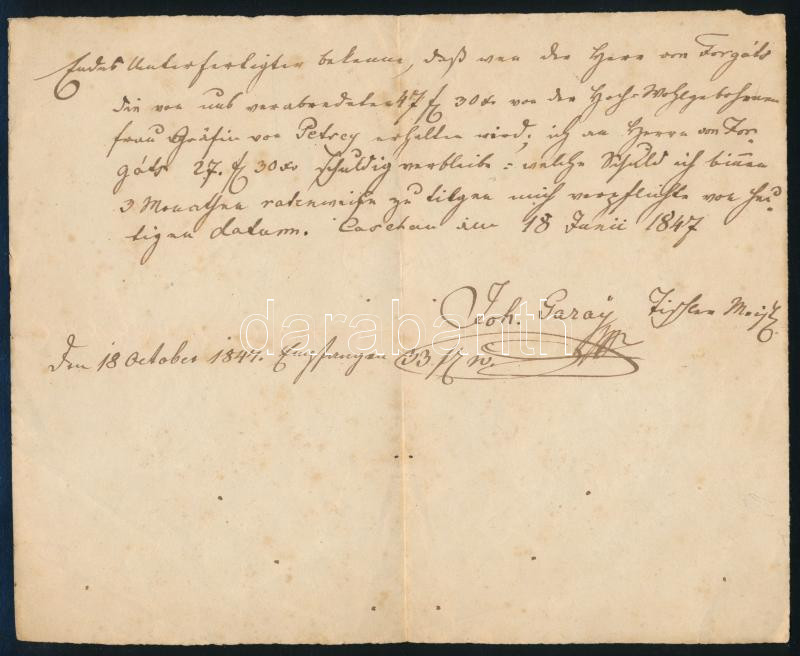 Endes Unterfertigter bekenne, daß wen der Herr von Forgáts
die von uns verabredeten 47 f 30 xr von der Hoch=Wohlgebohrnen
frau Gräfin von Petsey erhalten wird; ich an Herrn von For=
gáts 27. f 30 xr schuldig verbleibe = welche Schuld ich binnen
3 Monathen ratenweise zu tilgen mich verpflichte von heu=
tigen datum. Caschau im 18 Junii 1847
Joh. Garaÿ Tischler Meist
Den 18 October 1847. Empfangen 33 f
darabanth